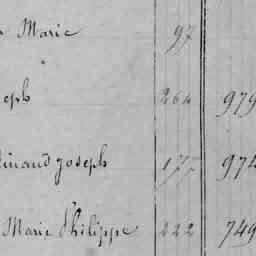 Marie 97
eph 264 979
inand joseph 177 974
Marie Philippe 222 749